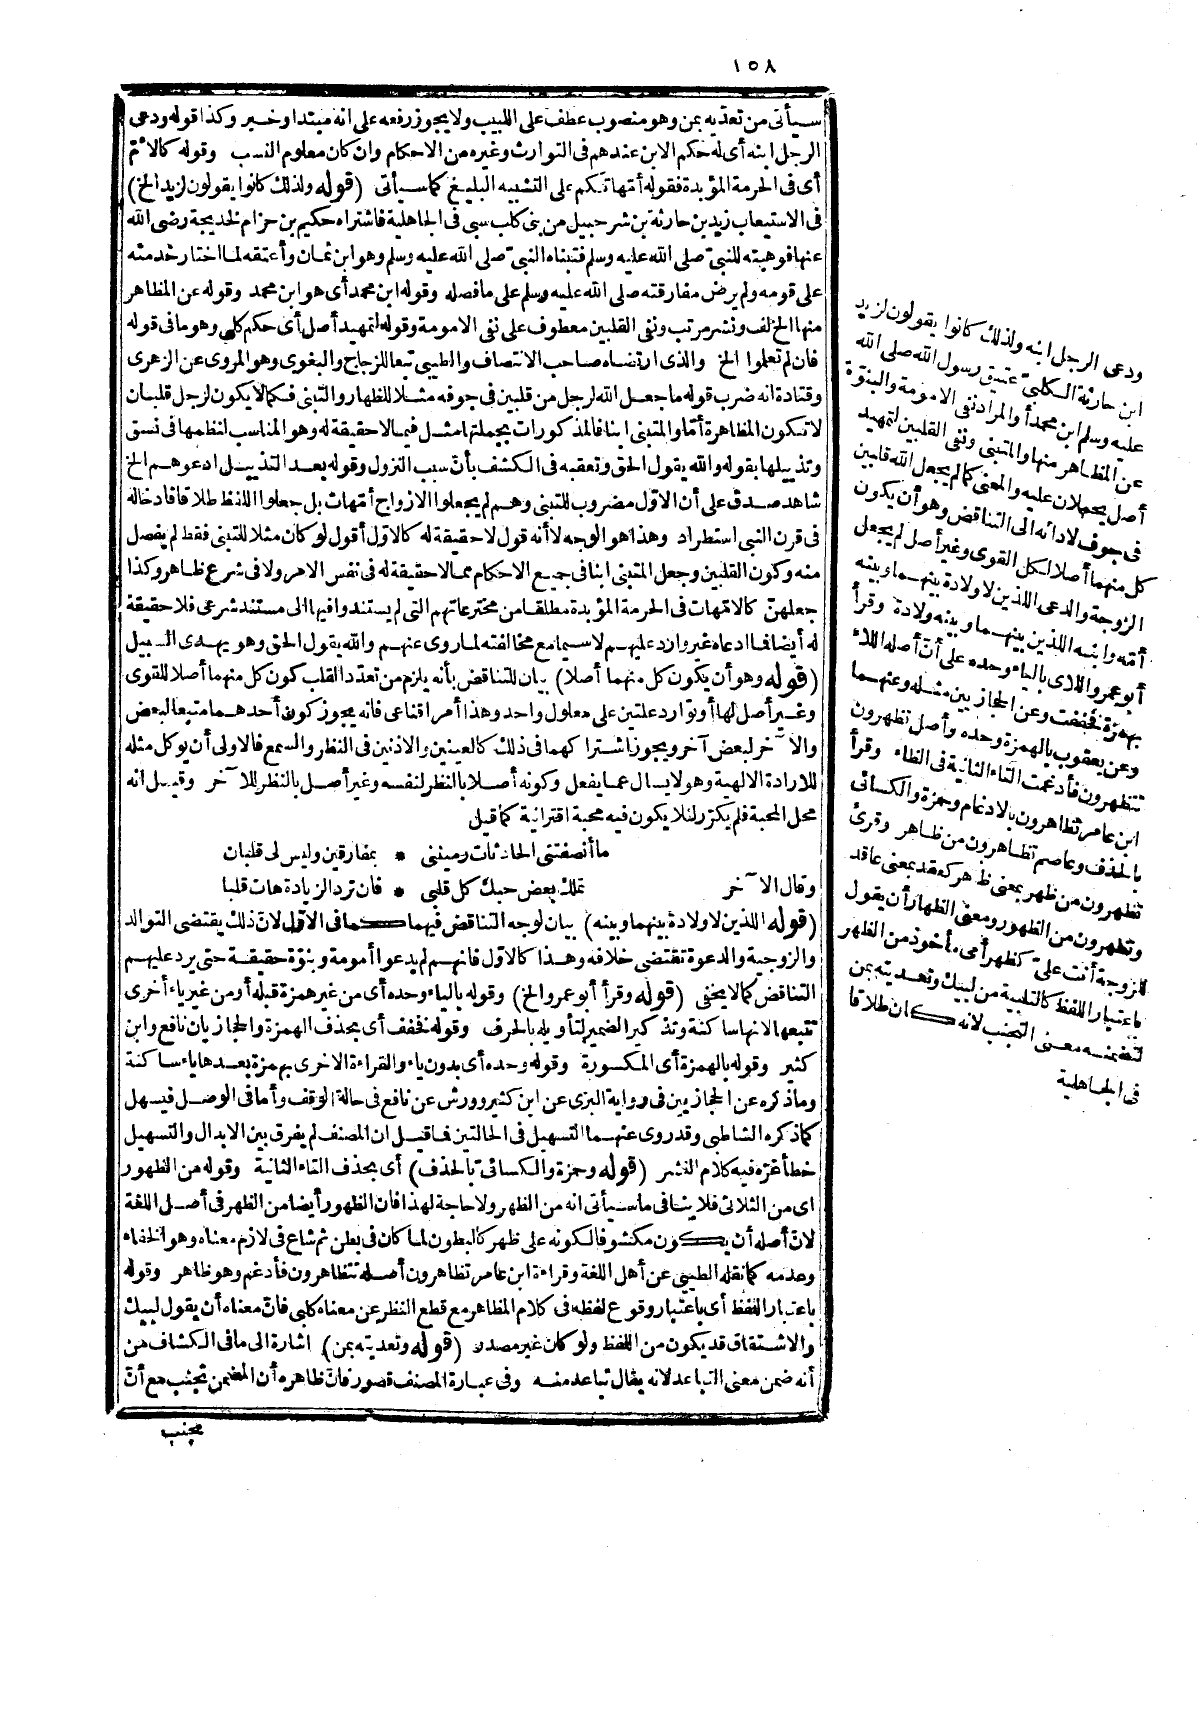 ١٥٨
سيأتى من تعديه بمن وهو منصوب عطف على اللبيب ولا يجوز رفعه على انه مبتدا وخبر وكذا قوله ودعى
الرجل ابنه أى له حكم الابن عندهم فى التوارث وغيره من الاحكام وان كان معلوم النسب وقوله كالام
أى فى الحرمة المؤبدة فقوله أمتها تهكم على التشبيه البليغ كما سيأتى (قوله ولذلك كانوا يقولون لزيد الخ)
فى الاستيعاب زيد بن حارثة بن شرحبيل من بنى كلب سبى فى الجاهلية فاشتراه حكيم بن حزام لخديجة رضى الله
عنها فوهبته للنبى صلى الله عليه وسلم فتبناه النبى صلى الله عليه وسلم وهو ابن ثمان وأعتقه لما اختار خدمته
على قومه ولم يرض مفارقته صلى الله عليه وسلم على ما فصله وقوله ابن محمد أى هو ابن محمد وقوله عن المظاهر
منها الخ لف ونشر مرتب ونفى القلبين معطوف على نفى الامومة وقوله لتمهيد أصل أى حكم كلى وهو ما فى قوله
فان لم تعلموا الخ والذى ارتضاه صاحب الانتصاف والطيبى تبعا للزجاج والبغوى وهو المروى عن الزهرى
وقتادة انه ضرب قوله ما جعل الله لرجل من قلبين فى جوفه مثلا للظهار والتبنى فكما لا يكون لرجل قلبان
لا تكون المظاهرة أمّا والمتبنى ابنا فالمذكورات بجملتها مثل فيما لا حقيقة له وهو المناسب لنظمها فى نسق
وتذييلها بقوله والله يقول الحق وتعقبه فى الكشف بأن سبب النزول وقوله بعد التذييل ادعوهم الخ
شاهد صدق على أن الاول مضروب للتبنى وهم لم يجعلوا الازواج أمّهات بل جعلوا اللفظ طلاقا فادخاله
فى قرن النبى استطراد وهذا هو الوجه لا أنه قول لا حقيقة له كالاول أقول لو كان مثلا للتبنى فقط لم يفصل
منه وكون القلبين وجعل المتبنى ابنا فى جميع الاحكام مما لا حقيقة له فى نفس الامر ولا فى شرع ظاهر وكذا
جعلهنّ كالامّهات فى الحرمة المؤبدة مطلقا من مخترعاتهم التى لم يستندوا فيها الى مستند شرعى فلا حقيقة
له أيضا فا ادعاه غير وارد عليهم لا سيما مع مخالفته لما روى عنهم والله يقول الحق وهو يهدى السبيل
(قوله وهو أن يكون كل منهما أصلا) بيان للتناقض بأنه يلزم من تعدّد القلب كون كل منهما أصلا للقوى
وغير أصل لها أو توارد علتين على معلول واحد وهذا أمر اقناعى فانه يجوز كون أحدهما متبعا لبعض
والآخر لبعض آخر ويجوز اشتراكهما فى ذلك كالعينين والاذنين فى النظر والسمع فالاولى أن يوكل مثله
للارادة الالهية وهو لا يسال عما يفعل وكونه أصلا بالنظر لنفسه وغير أصل بالنظر للآخر وقيل انه
محل المحبة فلم يكرّر لئلا يكون فيه محبة اقترانية كما قيل
ما أنصفتنى الحادثات رميننى * بمفارقين وليس لى قلبان
وقال الآخر تملك بعض حبك كل قلبى * فان ترد الزيادة هات قلبا
(قوله اللذين لا ولادة بينهما وبينه) بيان لوجه التناقض فيهما كما فى الاوّل لانّ ذلك يقتضى التوالد
والزوجية والدعوة تقتضى خلافه وهذا كالاوّل فانهم لم يدعوا أمومة وبنوّة حقيقة حتى يرد عليهم
التناقض كما لا يخفى (قوله وقرأ أبو عمرو الخ) وقوله بالياء وحده أى من غير همزة قبله أو من غير ياء أخرى
تتبعها لانها ساكنة وتذكير الضمير لتأويله بالحرف وقوله فخفف أى بحذف الهمزة والحجازيان نافع وابن
كثير وقوله بالهمزة أى المكسورة وقوله وحده أى بدون ياء والقراءة الاخرى بهمزة بعدها ياء ساكنة
وما ذكره عن الحجازيين فى رواية البزى عن ابن كثير وورش عن نافع فى حالة الوقف وأما فى الوصل فيسهل
كما ذكره الشاطبى وقد روى عنهما التسهيل فى الحالتين فاقيل ان المصنف لم يفرق بين الابدال والتسهيل
خطأ غرّه فيه كلام النشر (قوله وحمزة والكسائىّ بالحذف) أى بحذف التاء الثانية وقوله من الظهور
اى من الثلاثى فلا ينافى ما سيأتى انه من الظهر ولا حاجة لهذا فان الظهور أيضا من الظهر فى أصل اللغة
لانّ أصله أن يكون مكشوفا لكونه على ظهر كالبطون لما كان فى بطن ثم شاع فى لازم معناه وهو الخفاء
وعدمه كما نقله الطيبى عن أهل اللغة وقراءة ابن عامر تظاهرون أصله تتظاهرون فأدغم وهو ظاهر وقوله
باعتبار اللفظ أى باعتبار وقوع لفظه فى كلام المظاهر مع قطع النظر عن معناه كلبى فانّ معناه أن يقول لبيك
والاشتقاق قد يكون من اللفظ ولو كان غير مصدر (قوله وتعديته بمن) اشارة الى ما فى الكشاف من
أنه ضمن معنى التباعد لانه يقال تباعد منه وفى عبارة المصنف قصور فانّ ظاهره أن المضمن تجنب مع أنّ
تجنب
ودعى الرجل ابنه ولذلك كانوا يقولون لزيد
ابن حارثة الكلبىّ عتيق رسول الله صلى الله
عليه وسلم ابن محمد أو المراد نفى الامومة والبنوّة
عن المظاهر منها والمتبنى ونفى القلبين لتمهيد
أصل يحملان عليه والمعنى كما لم يجعل الله قلبين
فى جوف لادائه الى التناقض وهو أن يكون
كل منهما أصلا لكل القوى وغير أصل لم يجعل
الزوجة والدعى اللذين لا ولادة بينهما وبينه
أمّه وابنه اللذين بينهما وبينه ولادة وقرأ
أبو عمرو اللاى بالياء وحده على أنّ أصله اللاء
بهمزة فخففت وعن الحجازيين مثله وعنهما
وعن يعقوب بالهمزة وحده وأصل تظهرون
تتظهرون فأدغمت التاء الثانية فى الظاء وقرأ
ابن عامر تظاهرون بالادغام وحمزة والكسائى
بالحذف وعاصم تظاهرون من ظاهر وقرئ
تظهرون من ظهر بمعنى ظاهر كعقد بمعنى عاقد
وتظهرون من الظهور ومعنى الظهار أن يقول
للزوجة أنت علىّ كظهر أمى مأخوذ من الظهر
باعتبار اللفظ كالتلبية من لبيك وتعديته بمن
لتضمنه معنى التجنب لانه كان طلاقا
فى الجاهلية